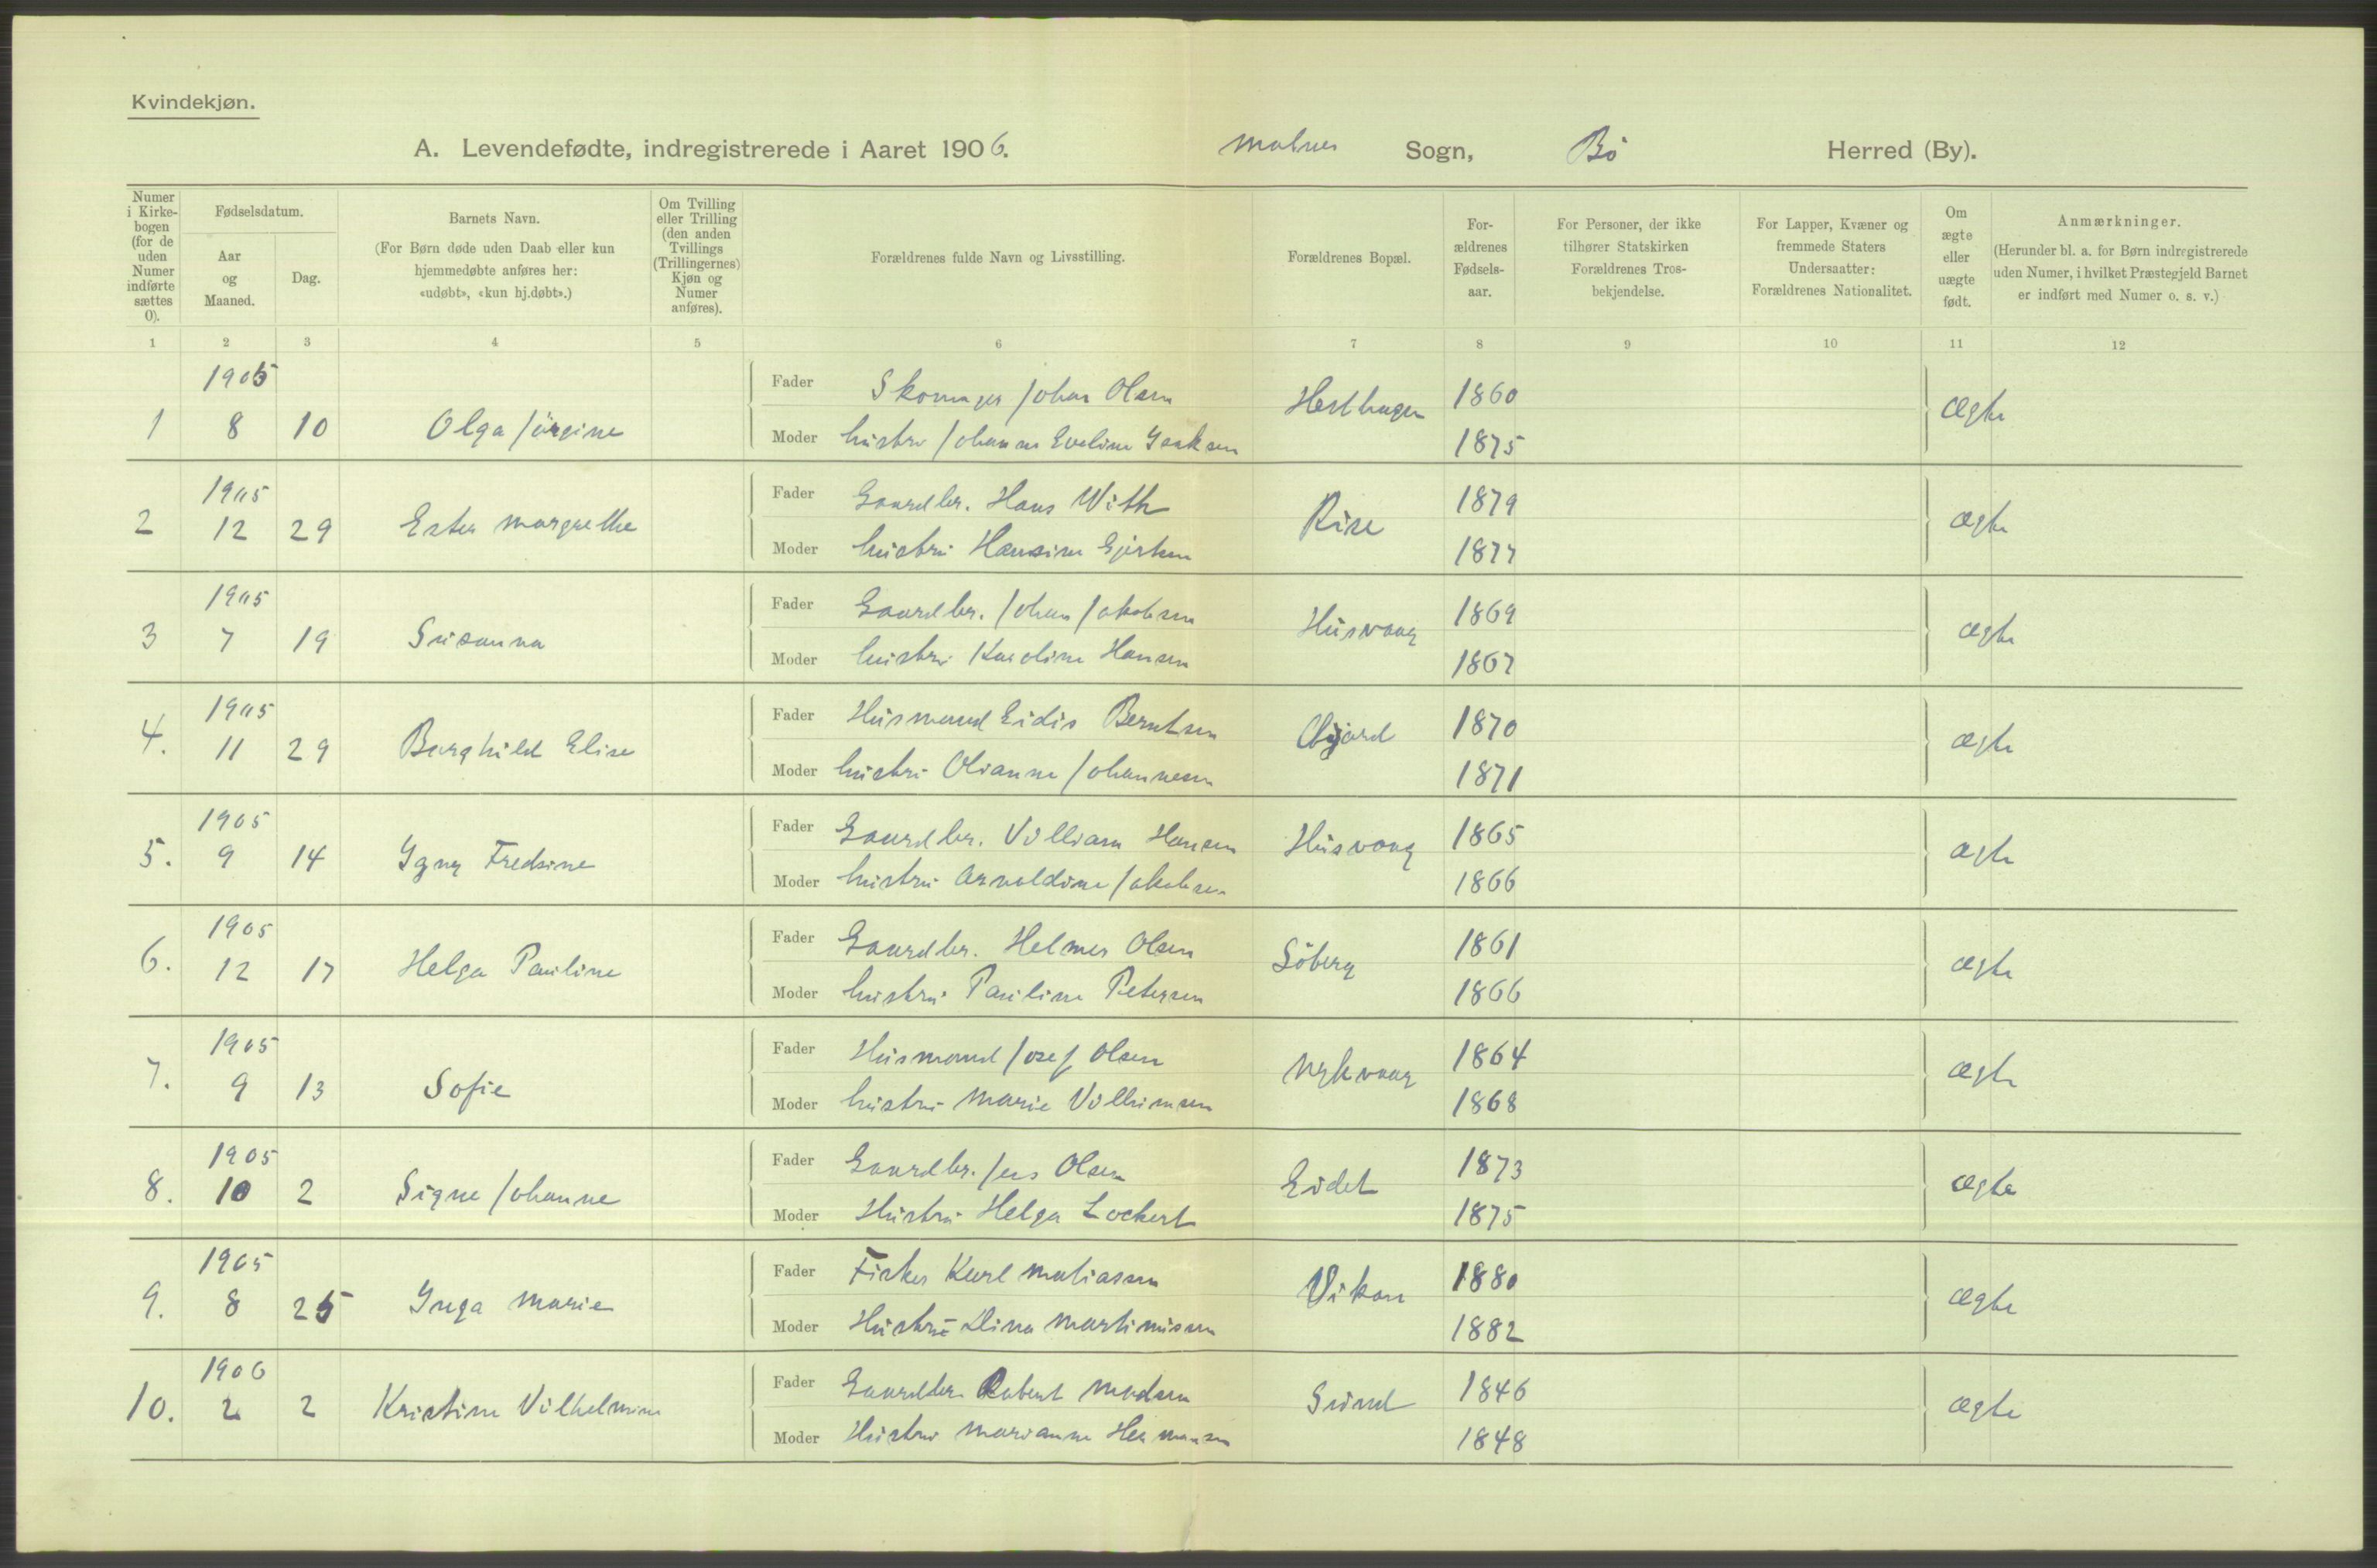 Kvindekjøn.
A. Levendefødte, indregistrerede i Aaret 1906. Malnes Sogn, Bö Herred (By).
Numer i Kirke-bogen (for de uden Numer indførte sættes 0).
Fødselsdatum.
Aar og Maaned.
Dag.
Barnets Navn.
(For Børn døde uden Daab eller kun hjemmedøbte anføres her: «udøbt», «kun hj.døbt».)
Om Tvilling eller Trilling (den anden Tvillings (Trillingernes) Kjøn og Numer anføres).
Forældrenes fulde Navn og Livsstilling.
Forældrenes Bopæl.
For-ældrenes Fødsels-aar.
For Personer, der ikke tilhører Statskirken Forældrenes Tros-bekjendelse.
For Lapper, Kvæner og fremmede Staters Undersaatter: Forældrenes Nationalitet.
Om ægte eller uægte født.
Anmærkninger.
(Herunder bl. a. for Børn indregistrerede uden Numer, i hvilket Præstegjeld Barnet er indført med Numer o. s. v.)
1 2 3 4 5 6 7 8 9 10 11 12
1905
Fader Skomager Johan Olsen 1860
1 8 10 Olga Jörgine Hesthagen Ægte
Moder hustru Johanna Eveline Isaksen 1875
1905
Fader Gaardbr. Hans With 1879
2 12 29 Ester Margrethe Rise Ægte
Moder hustru Hansine 1877
1905
Fader Gaardbr. Johan Jakobsen 1869
3 7 19 Susanna Husvaag Ægte
Moder hustru Karoline Hansen 1867
1905
Fader Husmand Eidis Berntsen 1870
4. 11 29 Borghild Elise Ægte
Moder hustru Olianna Johannesen 1871
1905
Fader Gaardbr. Villiam Hansen 1865
5. 9 14 Fredsine Husvaag Ægte
Moder hustru Arnoldine Jakobsen 1866
1905
Fader Gaardbr. Helmer Olsen 1861
6. 12 17 Helga Pauline Söberg Ægte
Moder hustru Pauline Petersen 1866
1905
Fader Husmand Josef Olsen 1864
7. 9 13 Sofie Nykvaag Ægte
Moder hustru Marie 1868
1905
Fader Gaardbr. Jens Olsen 1873
8. 10 2 Signe Johanne Eidet Ægte
Moder Hustru Helga Lockert 1875
1905
Fader Fisker Karl Matiassen 1880
9. 8 25 Inga Marie Vikan Ægte
Moder Hustru Dina Martinusen 1882
1906
Fader Gaardbr. Robert Madsen 1846
10. 2 2 Kristine Vilhelmine Sund Ægte
Moder Hustru Marianna Hermansen 1848